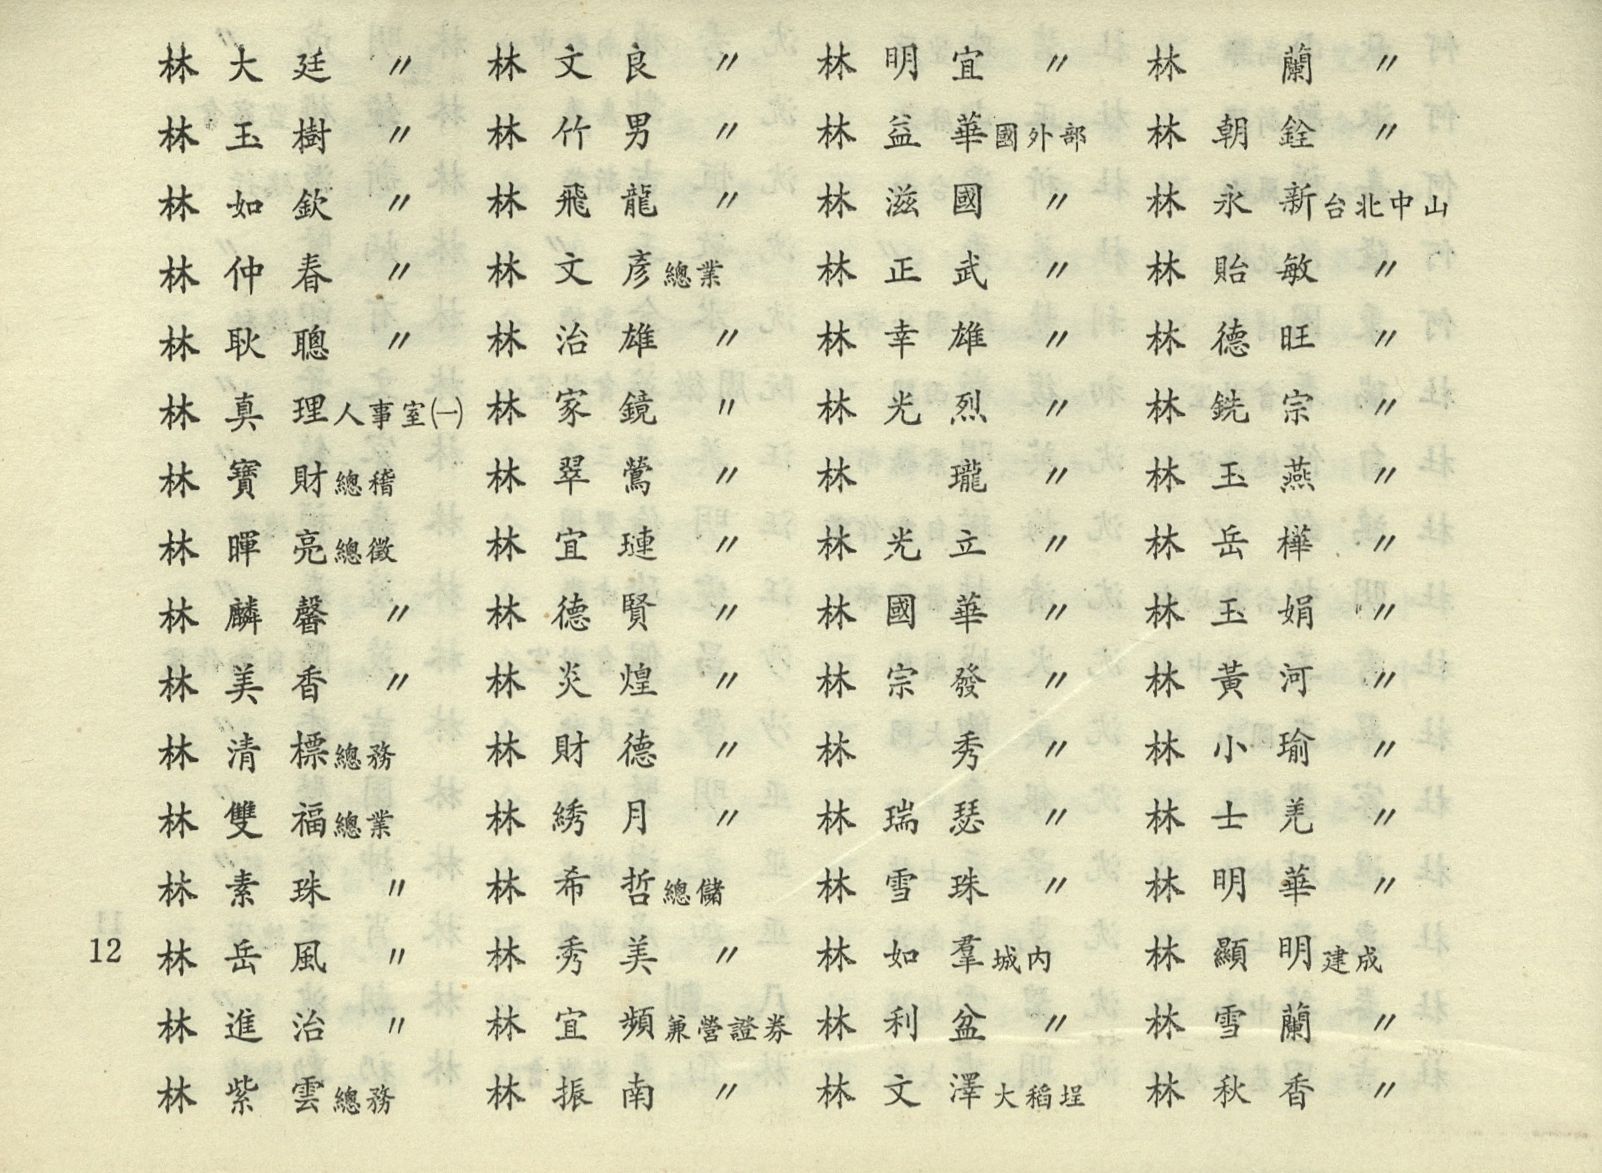 林大廷 〃
林玉樹 〃
林如欽 〃
林仲春 〃
林耿聰 〃
林真理 人事室㈠
林寶財 總稽
林暉亮 總徵
林麟馨 〃
林美香 〃
林清標 總務
林雙福 總業
林素珠 〃
林岳風 〃
林進治 〃
林紫雲 總務
林文良 〃
林竹男 〃
林飛龍 〃
林文彥 總業
林治雄 〃
林家鏡 〃
林翠鶯 〃
林宜璉 〃
林德賢 〃
林炎煌 〃
林財德 〃
林綉月 〃
林希哲 總儲
林秀美 〃
林宜頻 兼營證券
林振南 〃
林明宜 〃
林益華 國外部
林滋國 〃
林正武 〃
林幸雄 〃
林光烈 〃
林瓏 〃
林光立 〃
林國華 〃
林宗發 〃
林秀 〃
林瑞瑟 〃
林雪珠 〃
林如羣 城內
林利盆 〃
林文澤 大稻埕
林蘭 〃
林朝銓 〃
林永新 台北中山
林貽敏 〃
林德旺 〃
林銑宗 〃
林玉燕 〃
林岳樺 〃
林玉娟 〃
林黃河 〃
林小瑜 〃
林士羌 〃
林明華 〃
林顯明 建成
林雪蘭 〃
林秋香 〃
12